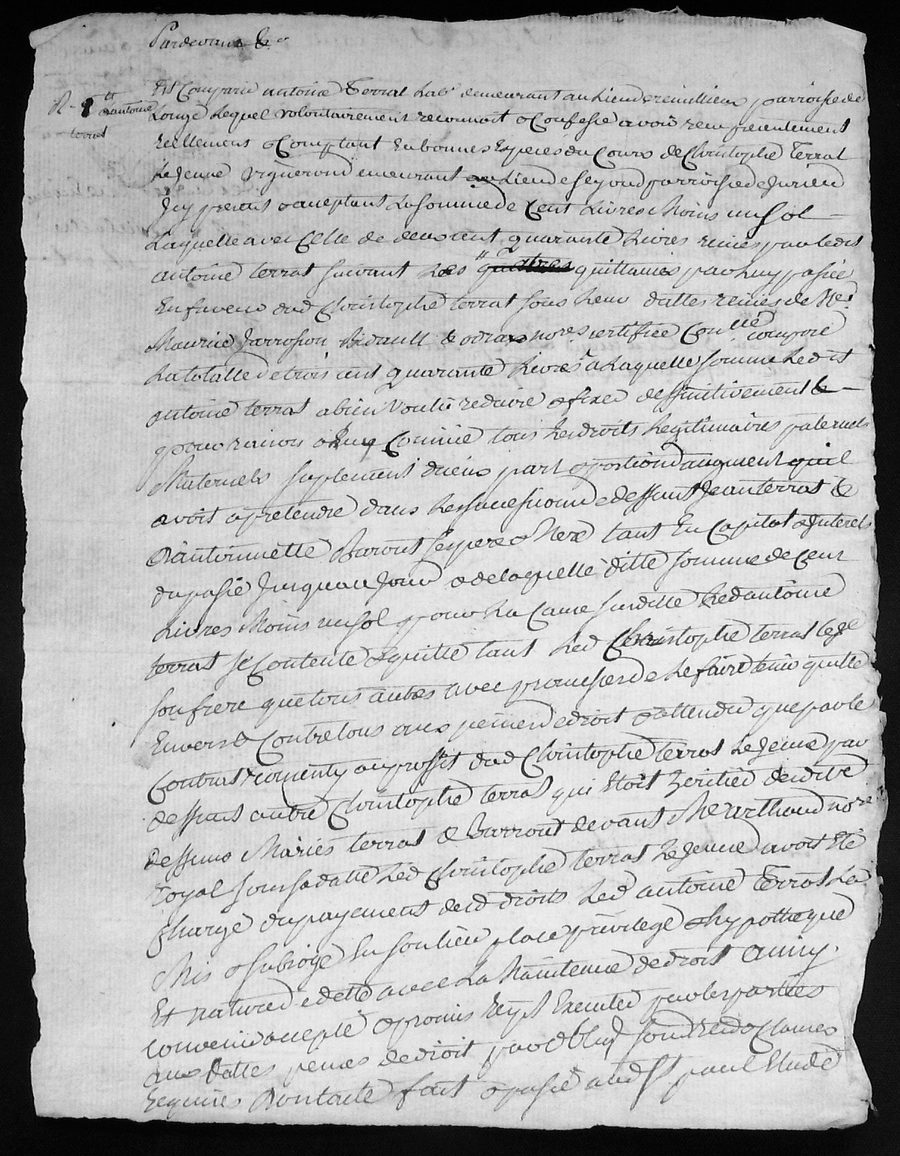 Pardevant &c
Est Comparu antoine Terrat Labr demeurant au Lieu parroisse de
R - qtt d'antoine terrat
Longe Lequel volontairement reconnoit & Confesse avoir reçu présentement
Réellement & Comptant En bonnes Espèces du Cours de Christophe Terrat
Le Jeune Vigneron demeurant au Lieu de Seyon parroisse de
Icy présent & aceptant La somme de Cent Livres Moins un sol
Laquelle avec Celle de deux cent quarante Livres reçues par ledit
antoine terrat suivant Les quittances par Luy passée
En faveur dud Christophe terrat sous Leur dattes reçues de Me
Maurice Jarrosson & nores certifiée compose
La totalle de trois cent quarante Livres a Laquelle somme Ledit
antoine terrat a bien voulu reduire & fixer deffinitivement &
pour raison tous Les droits Legitimaires paternels
Maternels suplement d'iceux part & portion d'augment quil
avoit a pretendre dans Les successions de deffunt Jean terrat &
D'antoinette Baront ses pere & Mere tant En Capital & Interets
du passé Jusqua ce Jour & de laquelle ditte somme de Cent
Livres Moins un sol pour La Cause susditte Led antoine
terrat se Contente & quitte tant Led Christophe terrat
son frere que tous autres avec promesse de Le faire tenir quitte
Envers & Contre tous aux peines de droit & attendu que par le
Contrat consenty au proffit dud Christophe terrat Le Jeune par
deffunt autre Christophe terrat qui Etoit heritier desdits
deffunts Mariés terrat & Barront devant Me arthaud nore
royal sous sa datte Led Christophe terrat Le Jeune avoit Eté
Chargé du payement desd droits Led antoine terrat La
Mis & subrogé En son lieu place privilege & hypotheque
Et nature de dette avec La Maintenue de droit ainsy
convenu accepté & promis Executer par les parties
aux dattes peines de droit par oblig soum ren & Clauses
requises Dont acte fait & passé aud St paul Etude